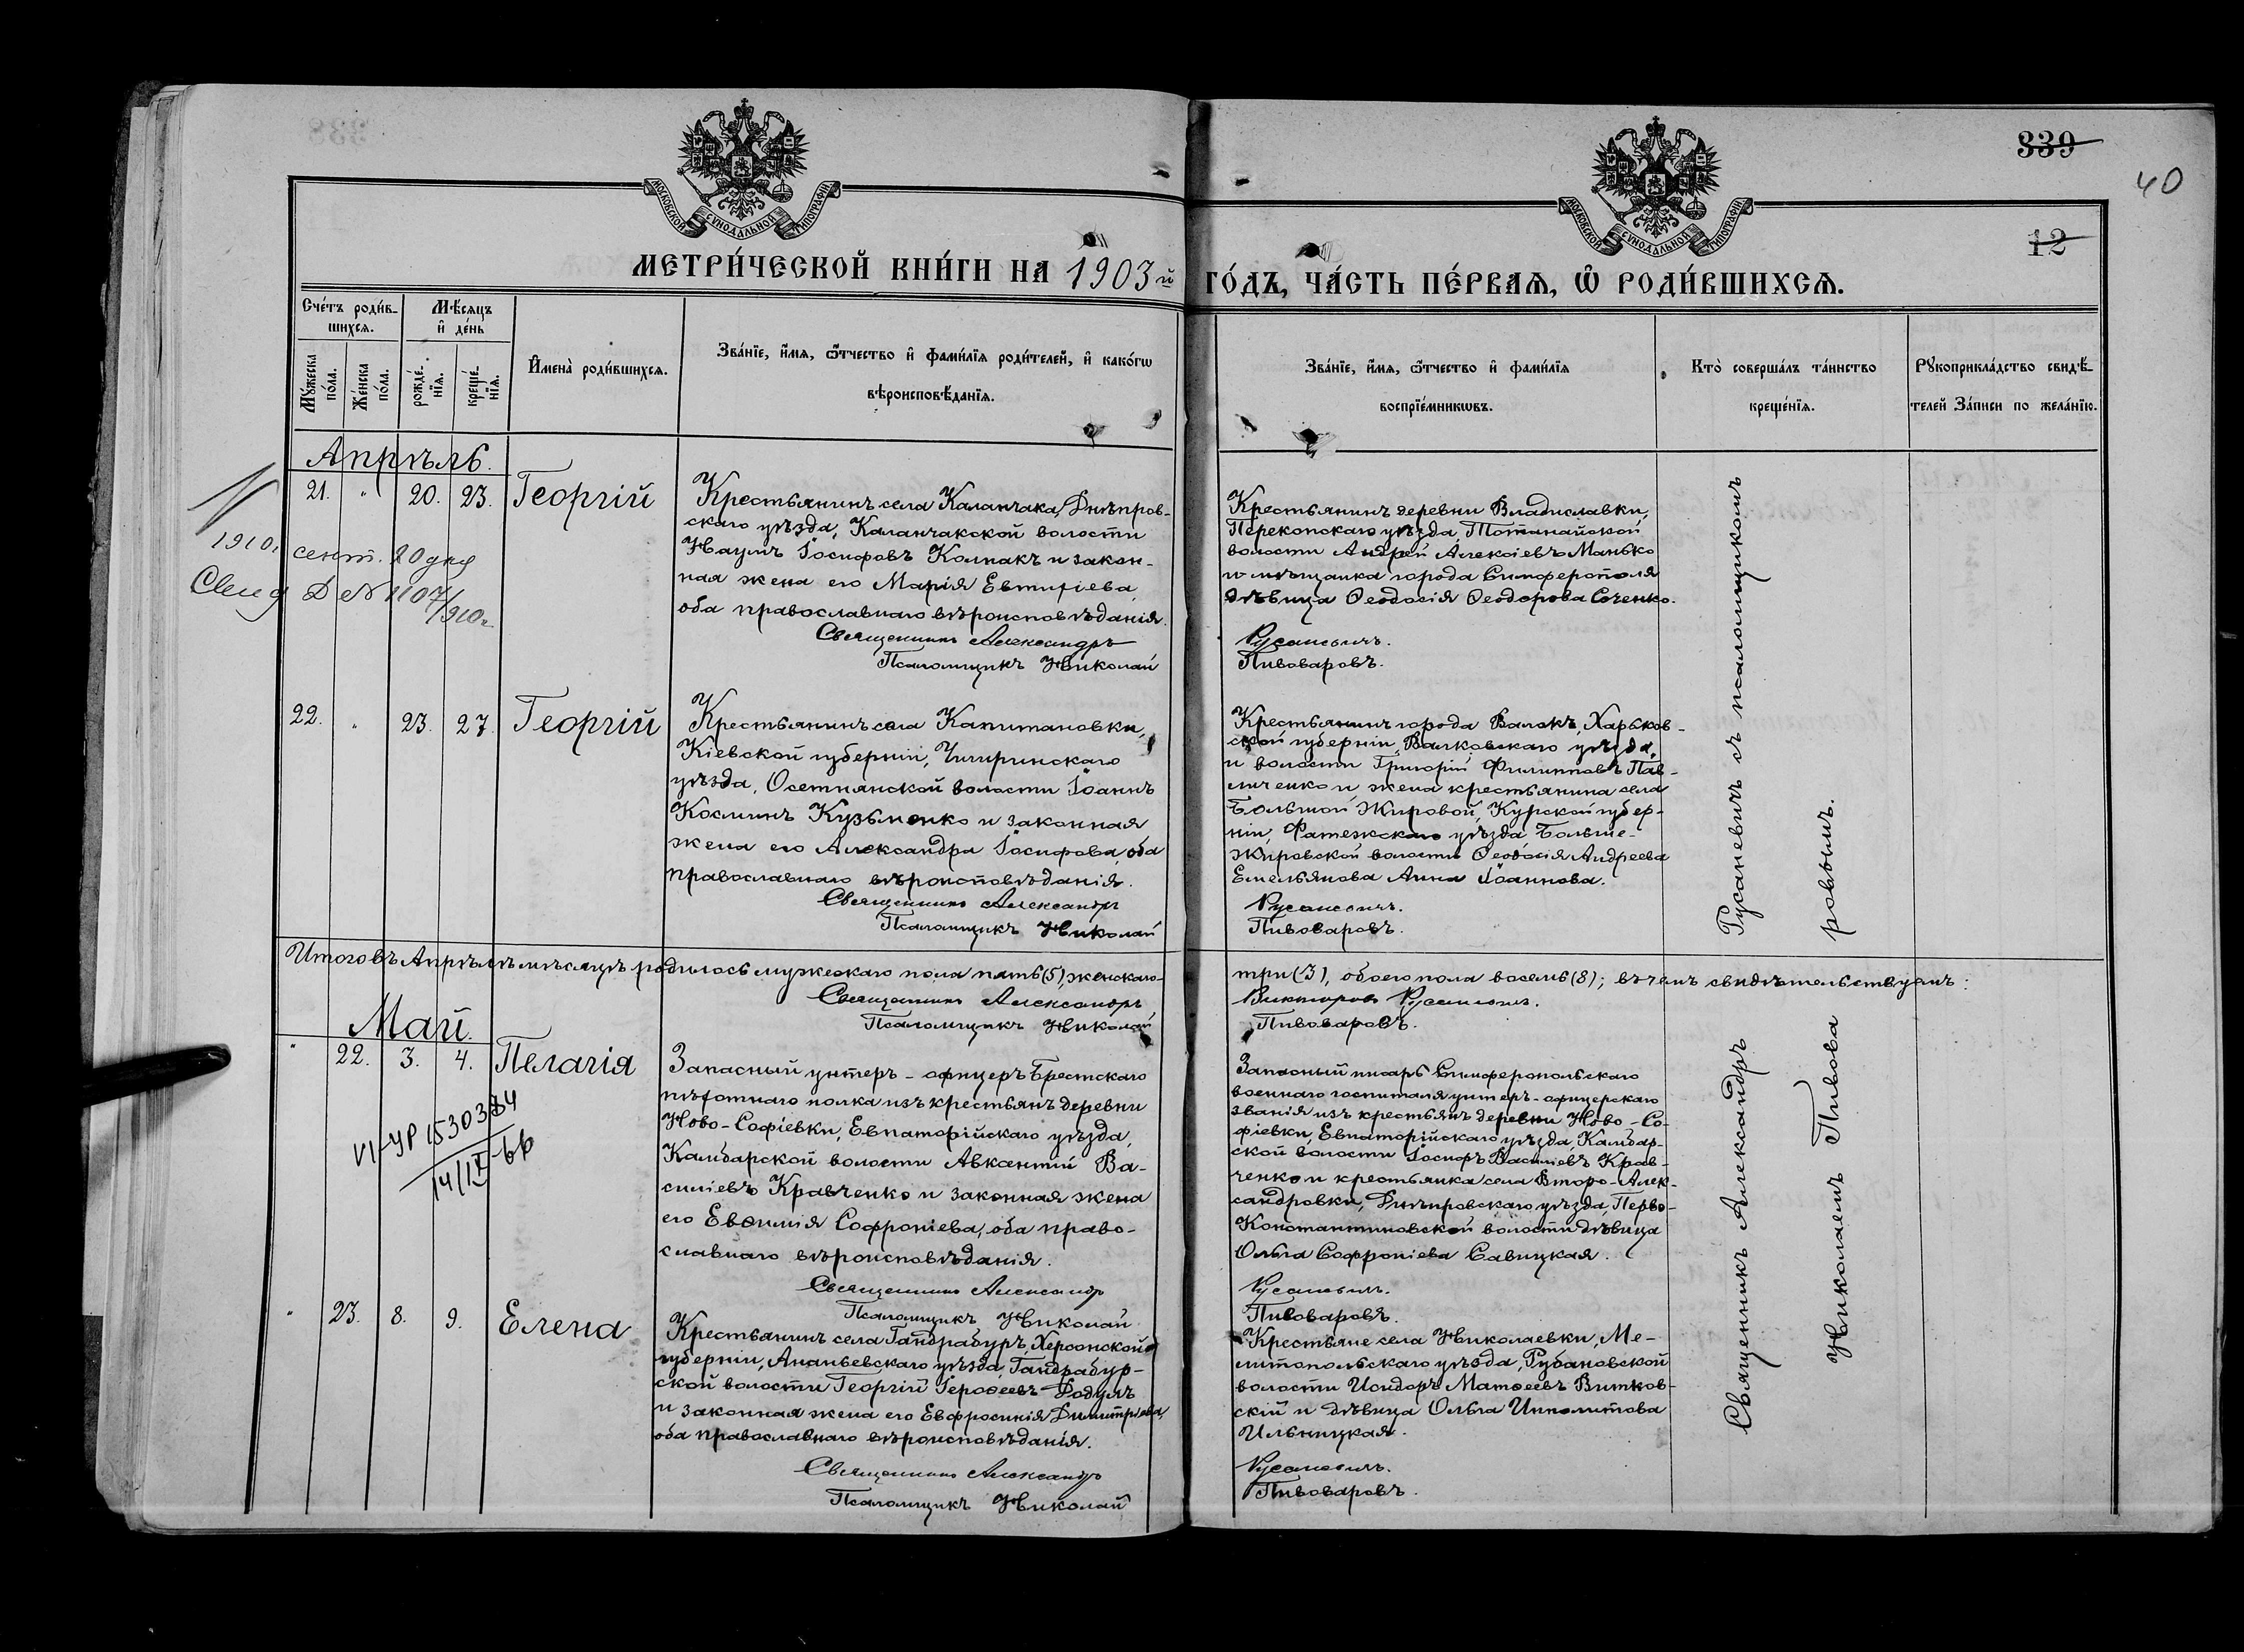 339
40
12
МОСКОВСКОЙ СѴНОДАЛЬНОЙ ТИПОГРАФІИ
МОСКОВСКОЙ СѴНОДАЛЬНОЙ ТИПОГРАФІИ
МЕТРИ́ЧЕСКОЙ КНИ́ГИ НА 1903й ГО́ДЪ, ЧА́СТЬ ПЕ́РВАѦ, Ѡ҆ РОДИ́ВШИХСѦ.
Сче́тъ роди́в-
шихсѧ.
Мѣ́сѧцъ
и҆ де́нь
Мꙋ́жеска
по́ла.
Же́нска
по́ла.
рожде́-
нїѧ.
креще́-
нїѧ.
И҆мена̀ роди́вшихсѧ.
Зва́нїе, и҆́мѧ, ѻ҆́тчество и҆ фами́лїѧ роди́телей, и҆ како́гѡ
вѣроисповѣ́данїѧ.
Зва́нїе, и҆́мѧ, ѻ҆́тчество и҆ фами́лїѧ
воспрїе́мникѡвъ.
Кто̀ соверша́лъ та́инство
креще́нїѧ.
Рꙋкоприкла́дство свидѣ́-
телей За́писи по жела́нїю.
Апрѣль.
21. " 20. 23. Георгій
Крестьянинъ села Каланчака, Днѣпров-
скаго уѣзда, Каланчакской волости
Наумъ Іосифовъ Колпакъ и закон-
ная жена его Марія Евтихіева,
оба православнаго вѣроисповѣданія.
Священникъ Александръ
Псаломщикъ Николай
Крестьянинъ деревни Владиславки,
Перекопскаго уѣзда, Тотанайской
волости Андрей Алексіевъ Манько
и мѣщанка города Симферополя
дѣвица Ѳеодосія Ѳеодорова Соченко.
Русаневичъ.
Пивоваровъ.
1910г сент. 20 дня
Свид Д № 1107/910г
22. " 23. 27. Георгій
Крестьянинъ села Капитановки,
Кіевской губерніи, Чигиринскаго
уѣзда, Осетнянской волости Іоаннъ
Косминъ Кузьменко и законная
жена его Александра Іосифова, оба
православнаго вѣроисповѣданія.
Священникъ Александръ
Псаломщикъ Николай
Крестьянинъ города Валокъ, Харьков-
ской губерніи, Валковскаго уѣзда,
и волости Григорій Филипповъ Пав-
личенко и жена крестьянина села
Большой Жировой, Курской губер-
ніи, Фатежскаго уѣзда, Больше-
Жировской волости Ѳеодосія Андреева
Емельянова Анна Іоаннова.
Русаневичъ.
Пивоваровъ.
Русаневичъ съ псаломщикомъ
ровымъ.
Итого въ Апрѣлѣ мѣсяцѣ родилось мужескаго пола пять (5), женскаго- три (3), обоего пола восемь (8); въ чемъ свидѣтельствуемъ:
Священникъ Александръ Викторовъ Русаневичъ.
Псаломщикъ Николай Пивоваровъ.
Май.
" 22. 3. 4. Пелагія
Запасный унтеръ-офицеръ Брестскаго
пѣхотнаго полка изъ крестьянъ деревни
Ново-Софіевки, Евпаторійскаго уѣзда,
Камбарской волости Авксентій Ва-
силіевъ Кравченко и законная жена
его Евѳимія Софроніева, оба право-
славнаго вѣроисповѣданія.
Священникъ Александръ
Псаломщикъ Николай
Запасный писарь Симферопольскаго
военнаго госпиталя унтеръ-офицерскаго
званія изъ крестьянъ деревни Ново-Со-
фіевки, Евпаторійскаго уѣзда, Камбар-
ской волости Іосифъ Василіевъ Крав-
ченко и крестьянка села Второ-Алек-
сандровки, Днѣпровскаго уѣзда, Перво-
Константиновской волости дѣвица
Ольга Софроніева Савицкая.
Русаневичъ.
Пивоваровъ.
VI-УР 1530384
14/IV-66
" 23. 8. 9. Елена
Крестьянинъ села Гандрабуръ, Херсонской
губерніи, Ананьевскаго уѣзда, Гандрабур-
ской волости Георгій Героѳеевъ Додулъ
и законная жена его Евфросинія Димитріева,
оба православнаго вѣроисповѣданія.
Священникъ Александръ
Псаломщикъ Николай
Крестьяне села Николаевки, Ме-
литопольскаго уѣзда, Рубановской
волости Исидоръ Матѳеевъ Витков-
скій и дѣвица Ольга Ипполитова
Ильницкая.
Русаневичъ.
Пивоваровъ.
Священникъ Александръ
Николаемъ Пивова